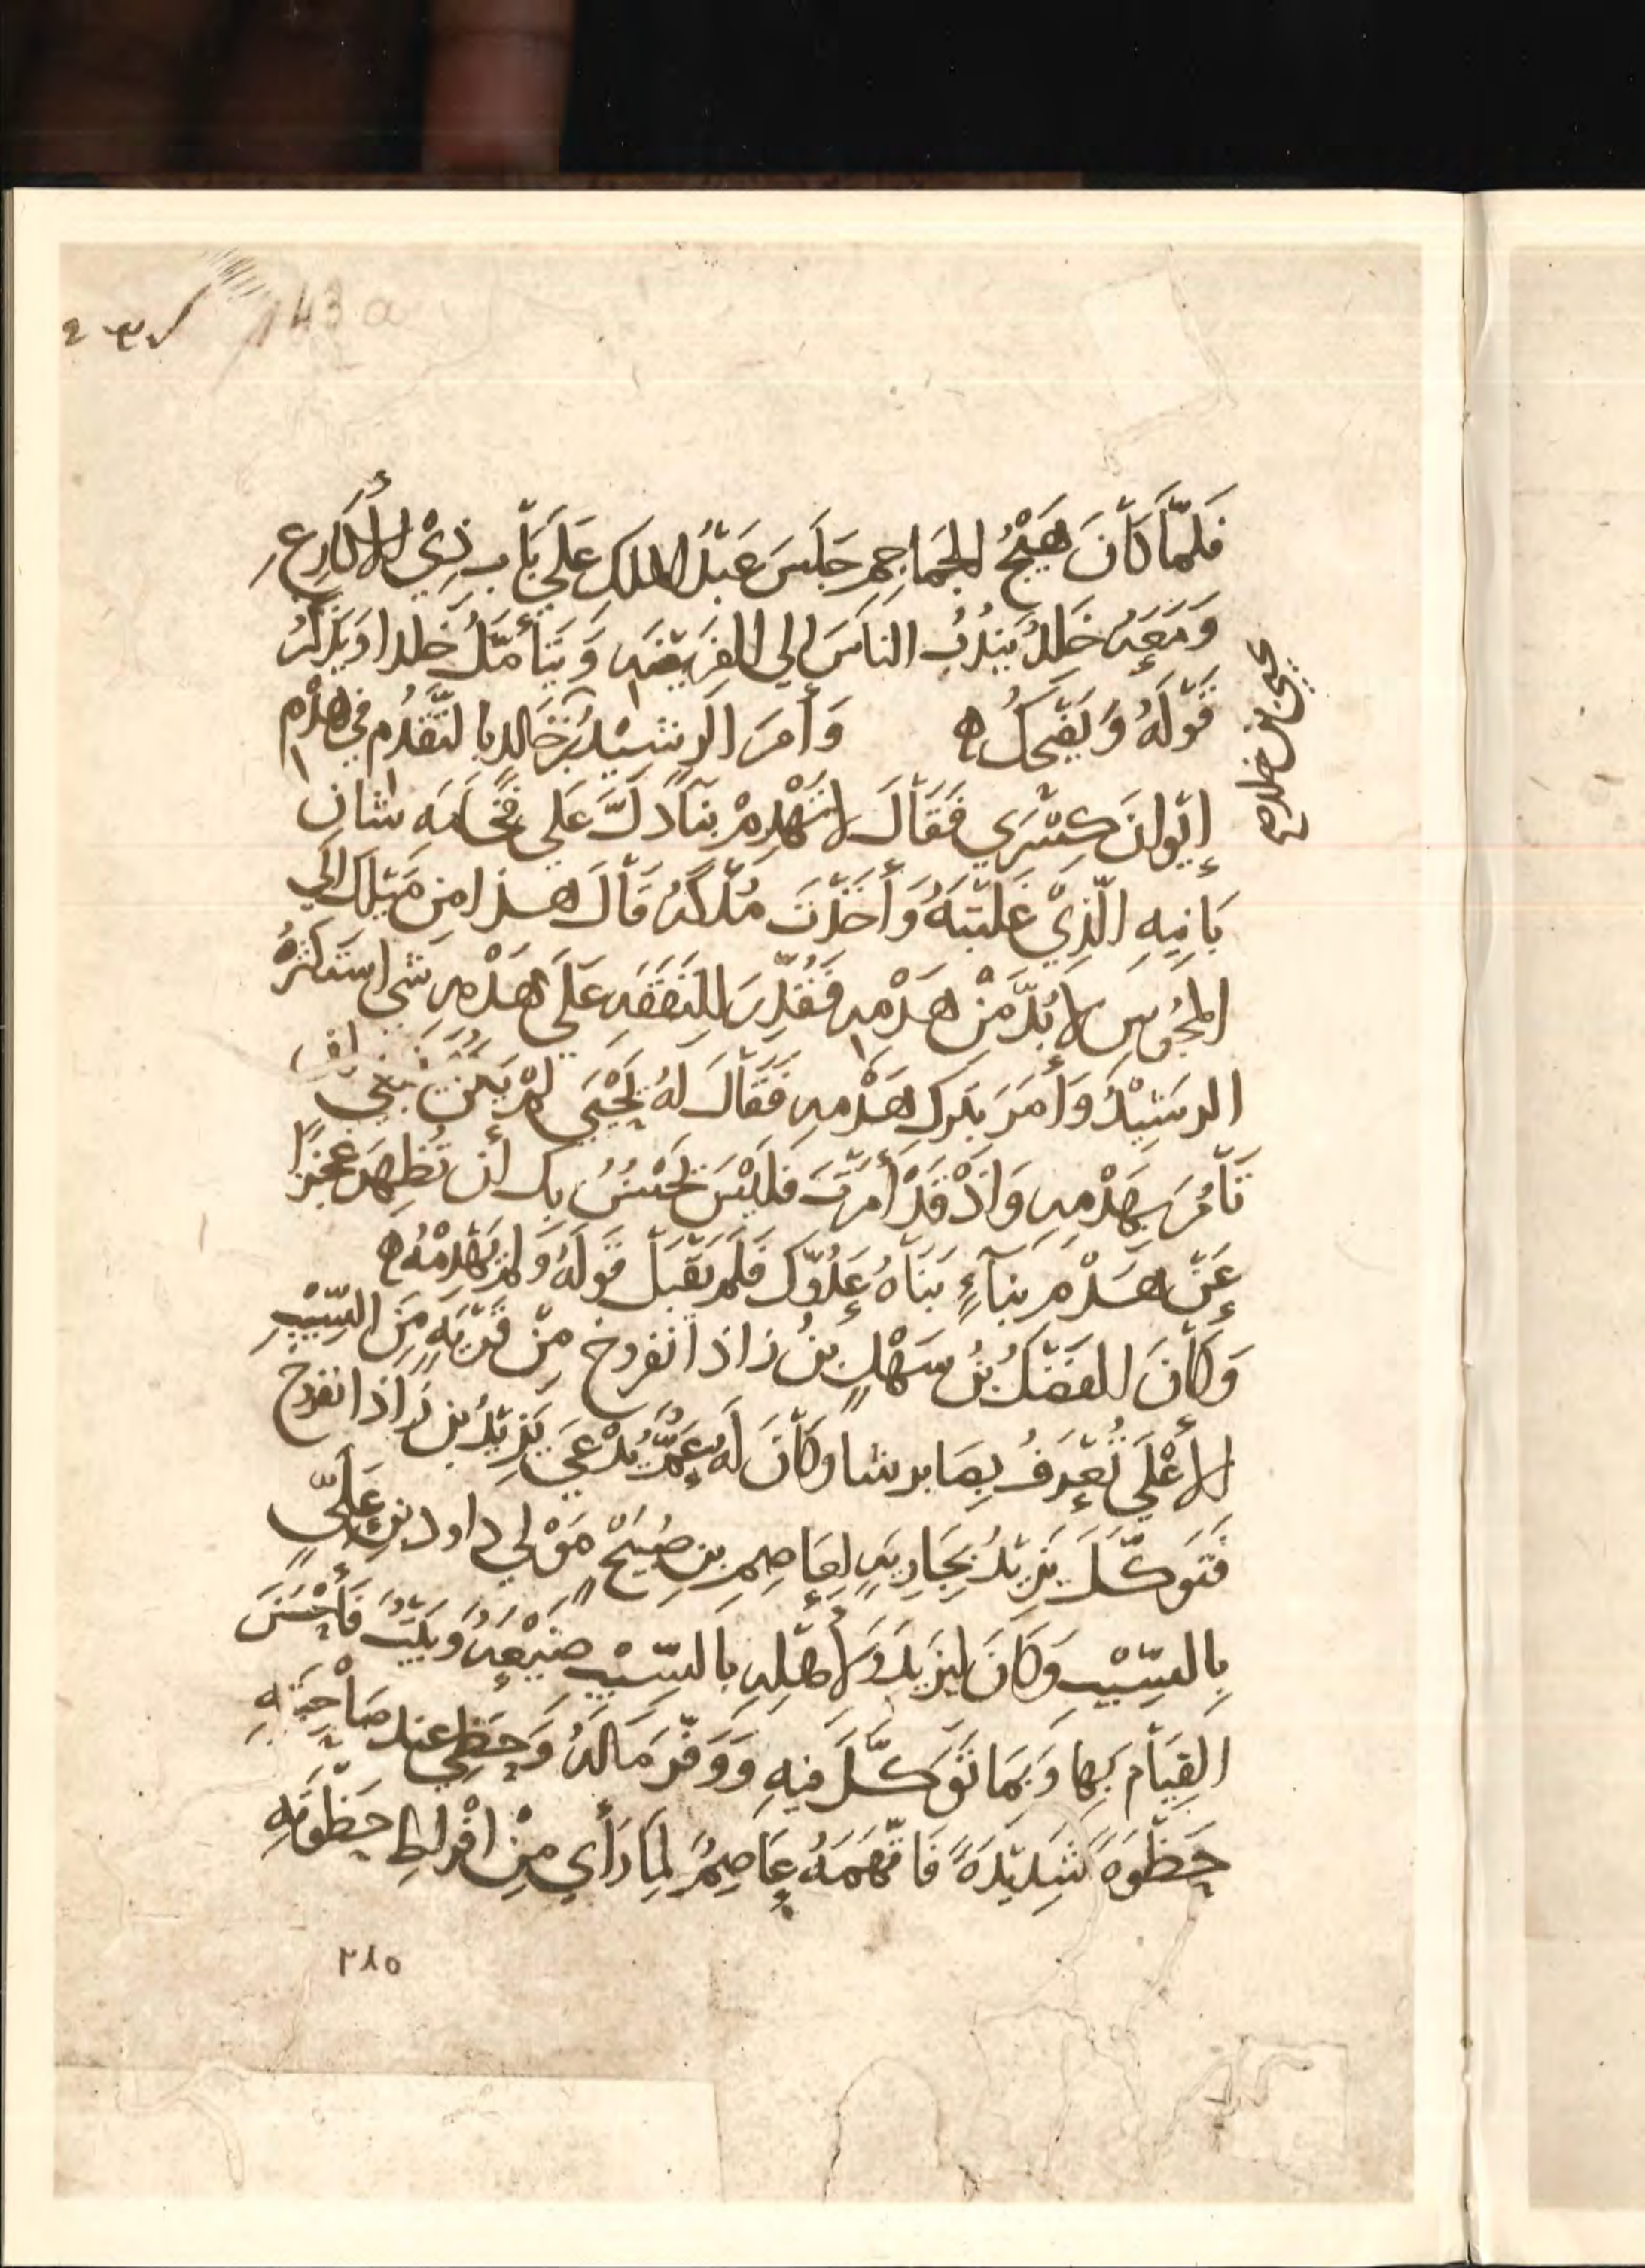 143 a
فَلَمَّا كَانَ هَيْجُ الجَمَاجِمِ جَلَسَ عَبْدُ الملك عَلَي بَابِ ذِيْ الأكَارِعِ
وَمَعَهُ خَلِدُ يَنْدُبُ الناسَ إلي الفَرِيضَهِ وَيَتَأمَّلُ خلدا وَيَذْكُرُ
قَوْلَهُ وَيَضْحَكُ ه وَأمَرَ الرشِيْدُ بالتَّقَدُّم في هَدْم
يحيى بن خلد
إيْوانِ كِسْرَي فَقَالَ لا تَهْدِمْ بِنَآءً دَلَّ عَلَي فَخَامَهِ شان
بَانِيهِ الَّذِيْ غَلَبْتَهُ وَأخَذْتَ مُلْكَهُ قَالَ هذا مِن مَيْلِكَ إلَي
المجُوسِ لا بُدَّ مِنْ هَدْمِهِ فَقُدِّرَ للِنَفَقَهِ عَلَي هَدْمِهِ شَي استَكْثَرَهُ
الرشِيْدُ وَأمَرَ بتَركِ هَدْمِهِ فَقَالَ لَهُ يَحْيَي لَمْ يَكُنْ يَنبَغي
تَأْمُرَ بِهَدْمِهِ وَاذْ قَدْ أمَرْتَ فَلَيْسَ يَحْسُنُ بِكَ أن تُظهِرَ عَجْزًا
عَنْ هَدْمِ بِنَآءٍ بَنَاهُ عَدُوُّكَ فَلَمْ يَقْبَلْ قَولَهُ وَلَمْ يَهْدِمْهُ ه
وَكَانَ الفَضْلُ بْنُ سَهْلِ بْنُ زاذانفروخ مِنْ قَرْيَهٍ مِنَ السِّيْبِ
الأعْلَي تُعْرَفُ بِصَابرنتا وَكَانَ لَهُ عَمٌّ يُدْعَي يَزِيْدُ بن زَاذانفروخ
فَتَوَكَّلَ يَزِيْدُ بِجَارِيَهٍ لِعَاصِمِ بنِ صُبَيْحٍ مَوْلي داود بنِ عَلِيٍّ
بِالسِّيْبِ وَكَانَ لِيَزِيْدَ وَلأهْلِهِ بِالسِّيْبِ ضَيْعَهُ وَبَيْتُ فَأحْسَنَ
القِيَامَ بِهِا وَبِمَا تَوَكَّلَ فيهِ وَوَفَّرَ مَالَهُ وَحَظِي عند صَاحِبَتِهِ
حَظْوَهً شَدِيْدَهً فَاتَّهَمَهُ عَاصِمُ لِمَا رَأي مِنْ افْراطِ حَظْوَتِهِ
٢٨٥